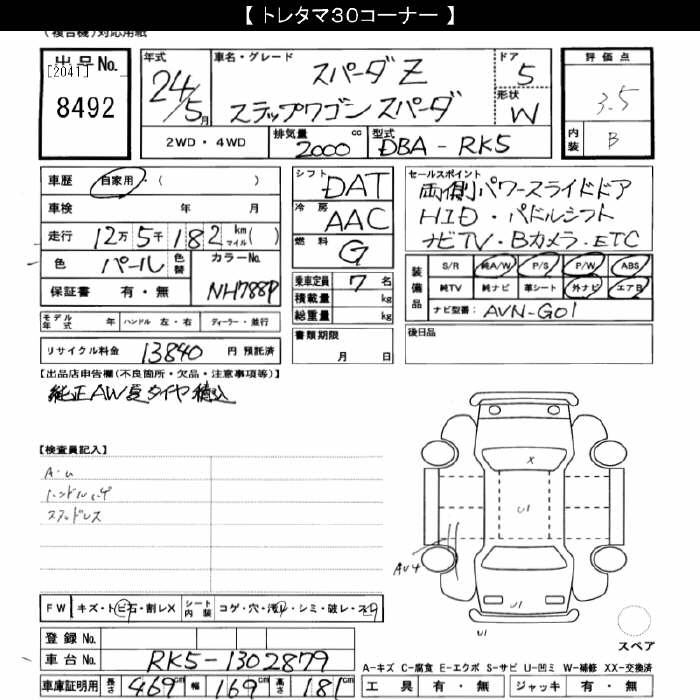 【 トレタマ30コーナー 】
(複合機)対応用紙
出品No. [2041] 8492
年式 24/5月
車名・グレード スパーダZ ステップワゴン スパーダ
ドア 5
形状 W
評価点 3.5
内装 B
2WD・4WD
排気量 2000 cc
型式 DBA-RK5
車歴 自家用・( )
車検 年 月
走行 12万5千182 km マイル( )
色 パール 色替 カラーNo. NH788P
保証書 有・無
シフト DAT
冷房 AAC
燃料 G
乗車定員 7名
積載量 kg
総重量 kg
セールスポイント
両側パワースライドドア
HID・パドルシフト
ナビTV・Bカメラ・ETC
装備品 S/R 純A/W P/S P/W ABS
純TV 純ナビ 革シート 外ナビ エアB
ナビ型番: AVN-G01
モデル年式 年 ハンドル 左・右 ディーラー・並行
リサイクル料金 13840 円 預託済
書類期限 月 日
後日品
【出品店申告欄(不良箇所・欠品・注意事項等)】
純正AW夏タイヤ積込
【検査員記入】
A・U
スタッドレス
X
U1
AU4
U1
U1
FW キズ・トビ石・割レX シート内装 コゲ・穴・汚レ・シミ・破レ・スレ
登録No.
車台No. RK5-1302879
車庫証明用 長さ 469cm 幅 169cm 高さ 181cm
スペア
A-キズ C-腐食 E-エクボ S-サビ U-凹ミ W-補修 XX-交換済
工具 有・無 ジャッキ 有・無